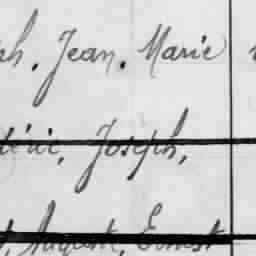 ph. Jean. Marie
déric, Joseph,
t, Auguste, Ernest